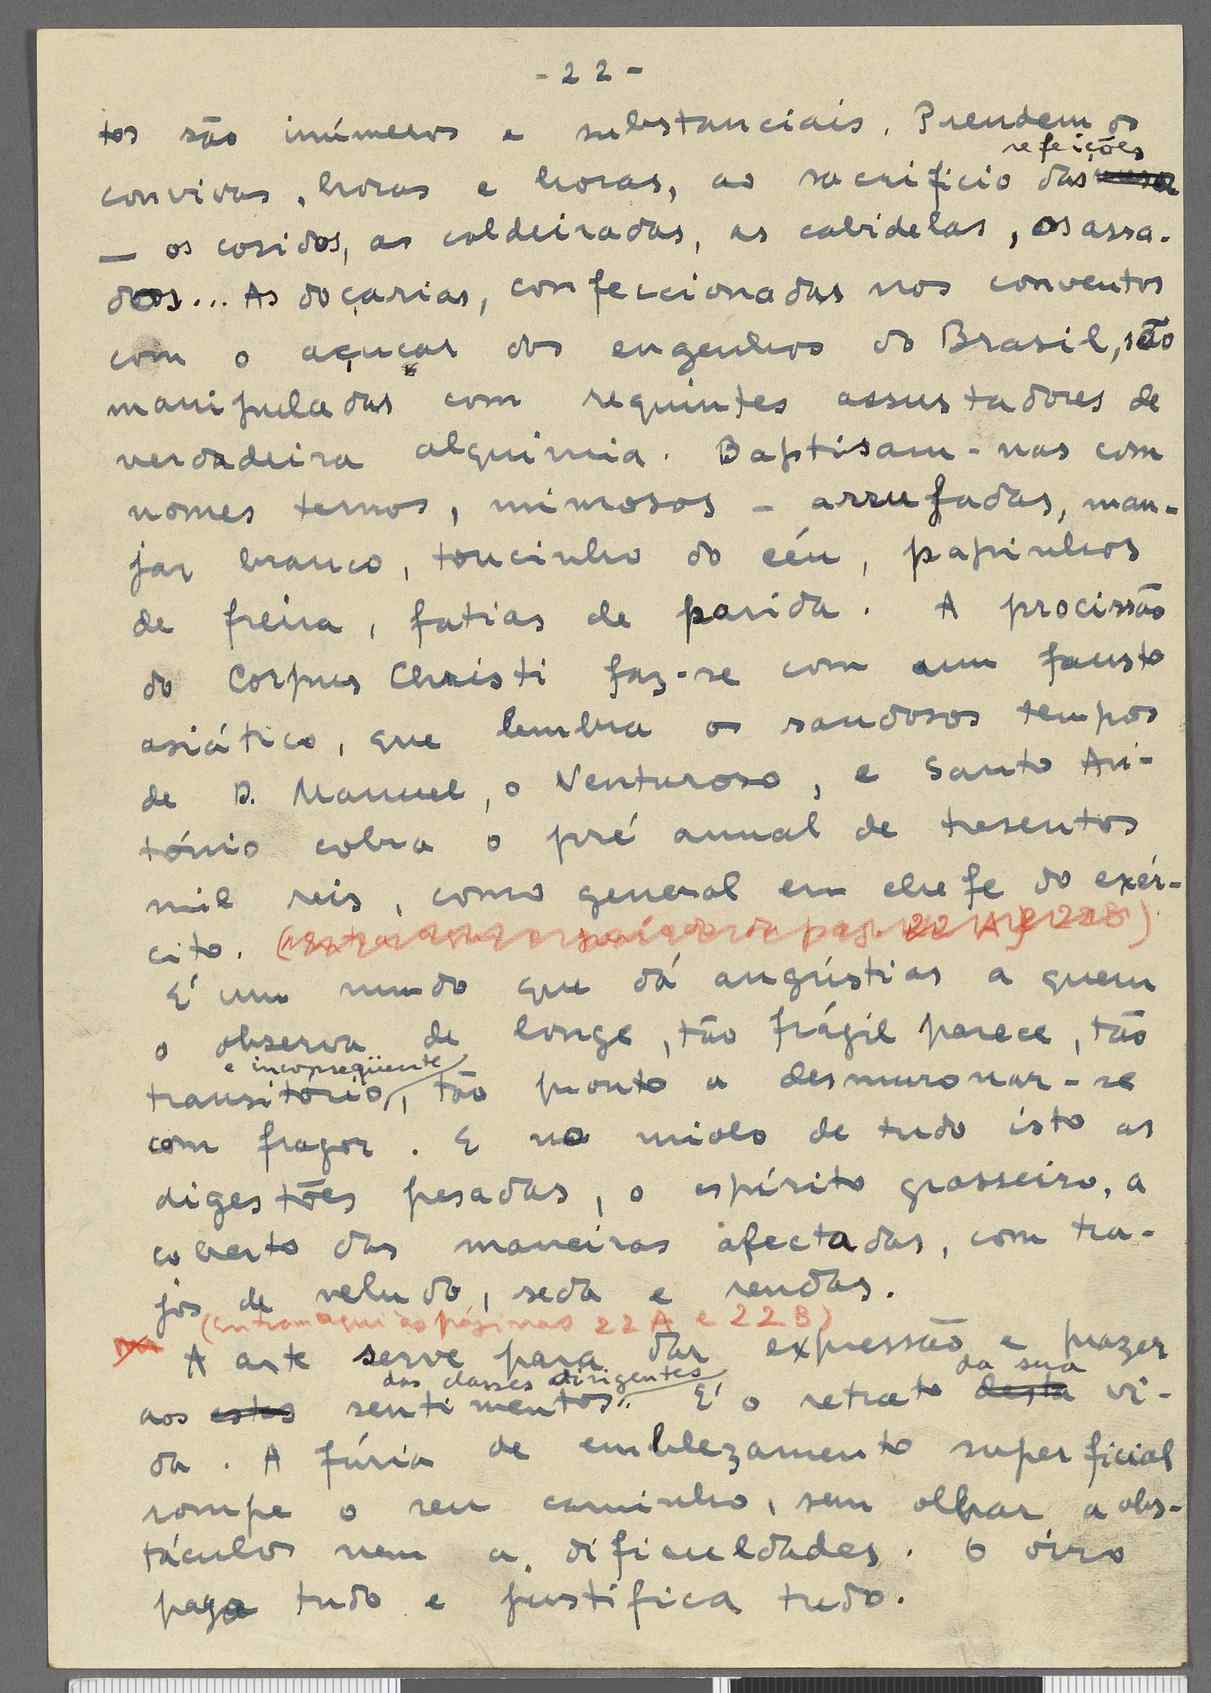 - 22 -
tos são inúmeros e substanciais. Prendem os
refeições
convivas, horas e horas, ao sacrifício das
— os cosidos, as caldeiradas, as cabidelas, os assa-
dos... As doçarias, confeccionadas nos conventos
com o açucar dos engenhos do Brasil, são
manipuladas com requintes assustadores de
verdadeira alquimia. Baptisam-nas com
nomes ternos, mimosos - arrufadas, man-
jar branco, toucinho do céu, papinhos
de freira, fatias de parida. A procissão
do Corpus Christi faz-se com um fausto
asiático, que lembra os saudosos tempos
de D. Manuel, o Venturoso, e Santo An-
tónio cobra o pré anual de tresentos
mil reis, como general em chefe do exér-
cito. pag. 22 A e 22 B)
É um mundo que dá angústias a quem
o observa de longe, tão frágil parece, tão
e inconseqüente
transitório, tão pronto a desmuronar-se
com fragor. E no miolo de tudo isto as
digestões pesadas, o espírito grosseiro, a
coberto das maneiras afectadas, com tra-
jos de veludo, seda e rendas.
(Entram aqui as páginas 22 A e 22 B)
A arte serve para dar expressão e prazer
das classes dirigentes da sua
aos estes sentimentos. É o retrato desta vi-
da. A fúria de emblezamento superficial
rompe o seu caminho, sem olhar a obs-
táculos nem a dificuldades. O óiro
paga tudo e justifica tudo.